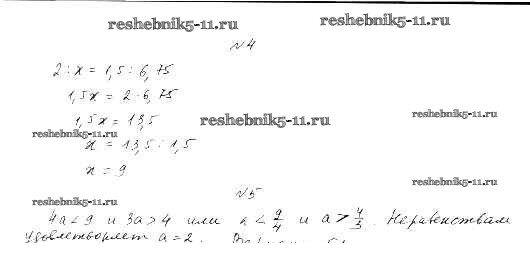 reshebnik5-11.ru reshebnik5-11.ru
№4
2 : x = 1,5 : 6,75
1,5x = 2 · 6,75
reshebnik5-11.ru
1,5x = 13,5 reshebnik5-11.ru
reshebnik5-11.ru
x = 13,5 : 1,5
x = 9
reshebnik5-11.ru
№5
reshebnik5-11.ru
4a < 9 и 3a > 4 или a < 9/4 и a > 4/3. Неравенствам
удовлетворяет a = 2.